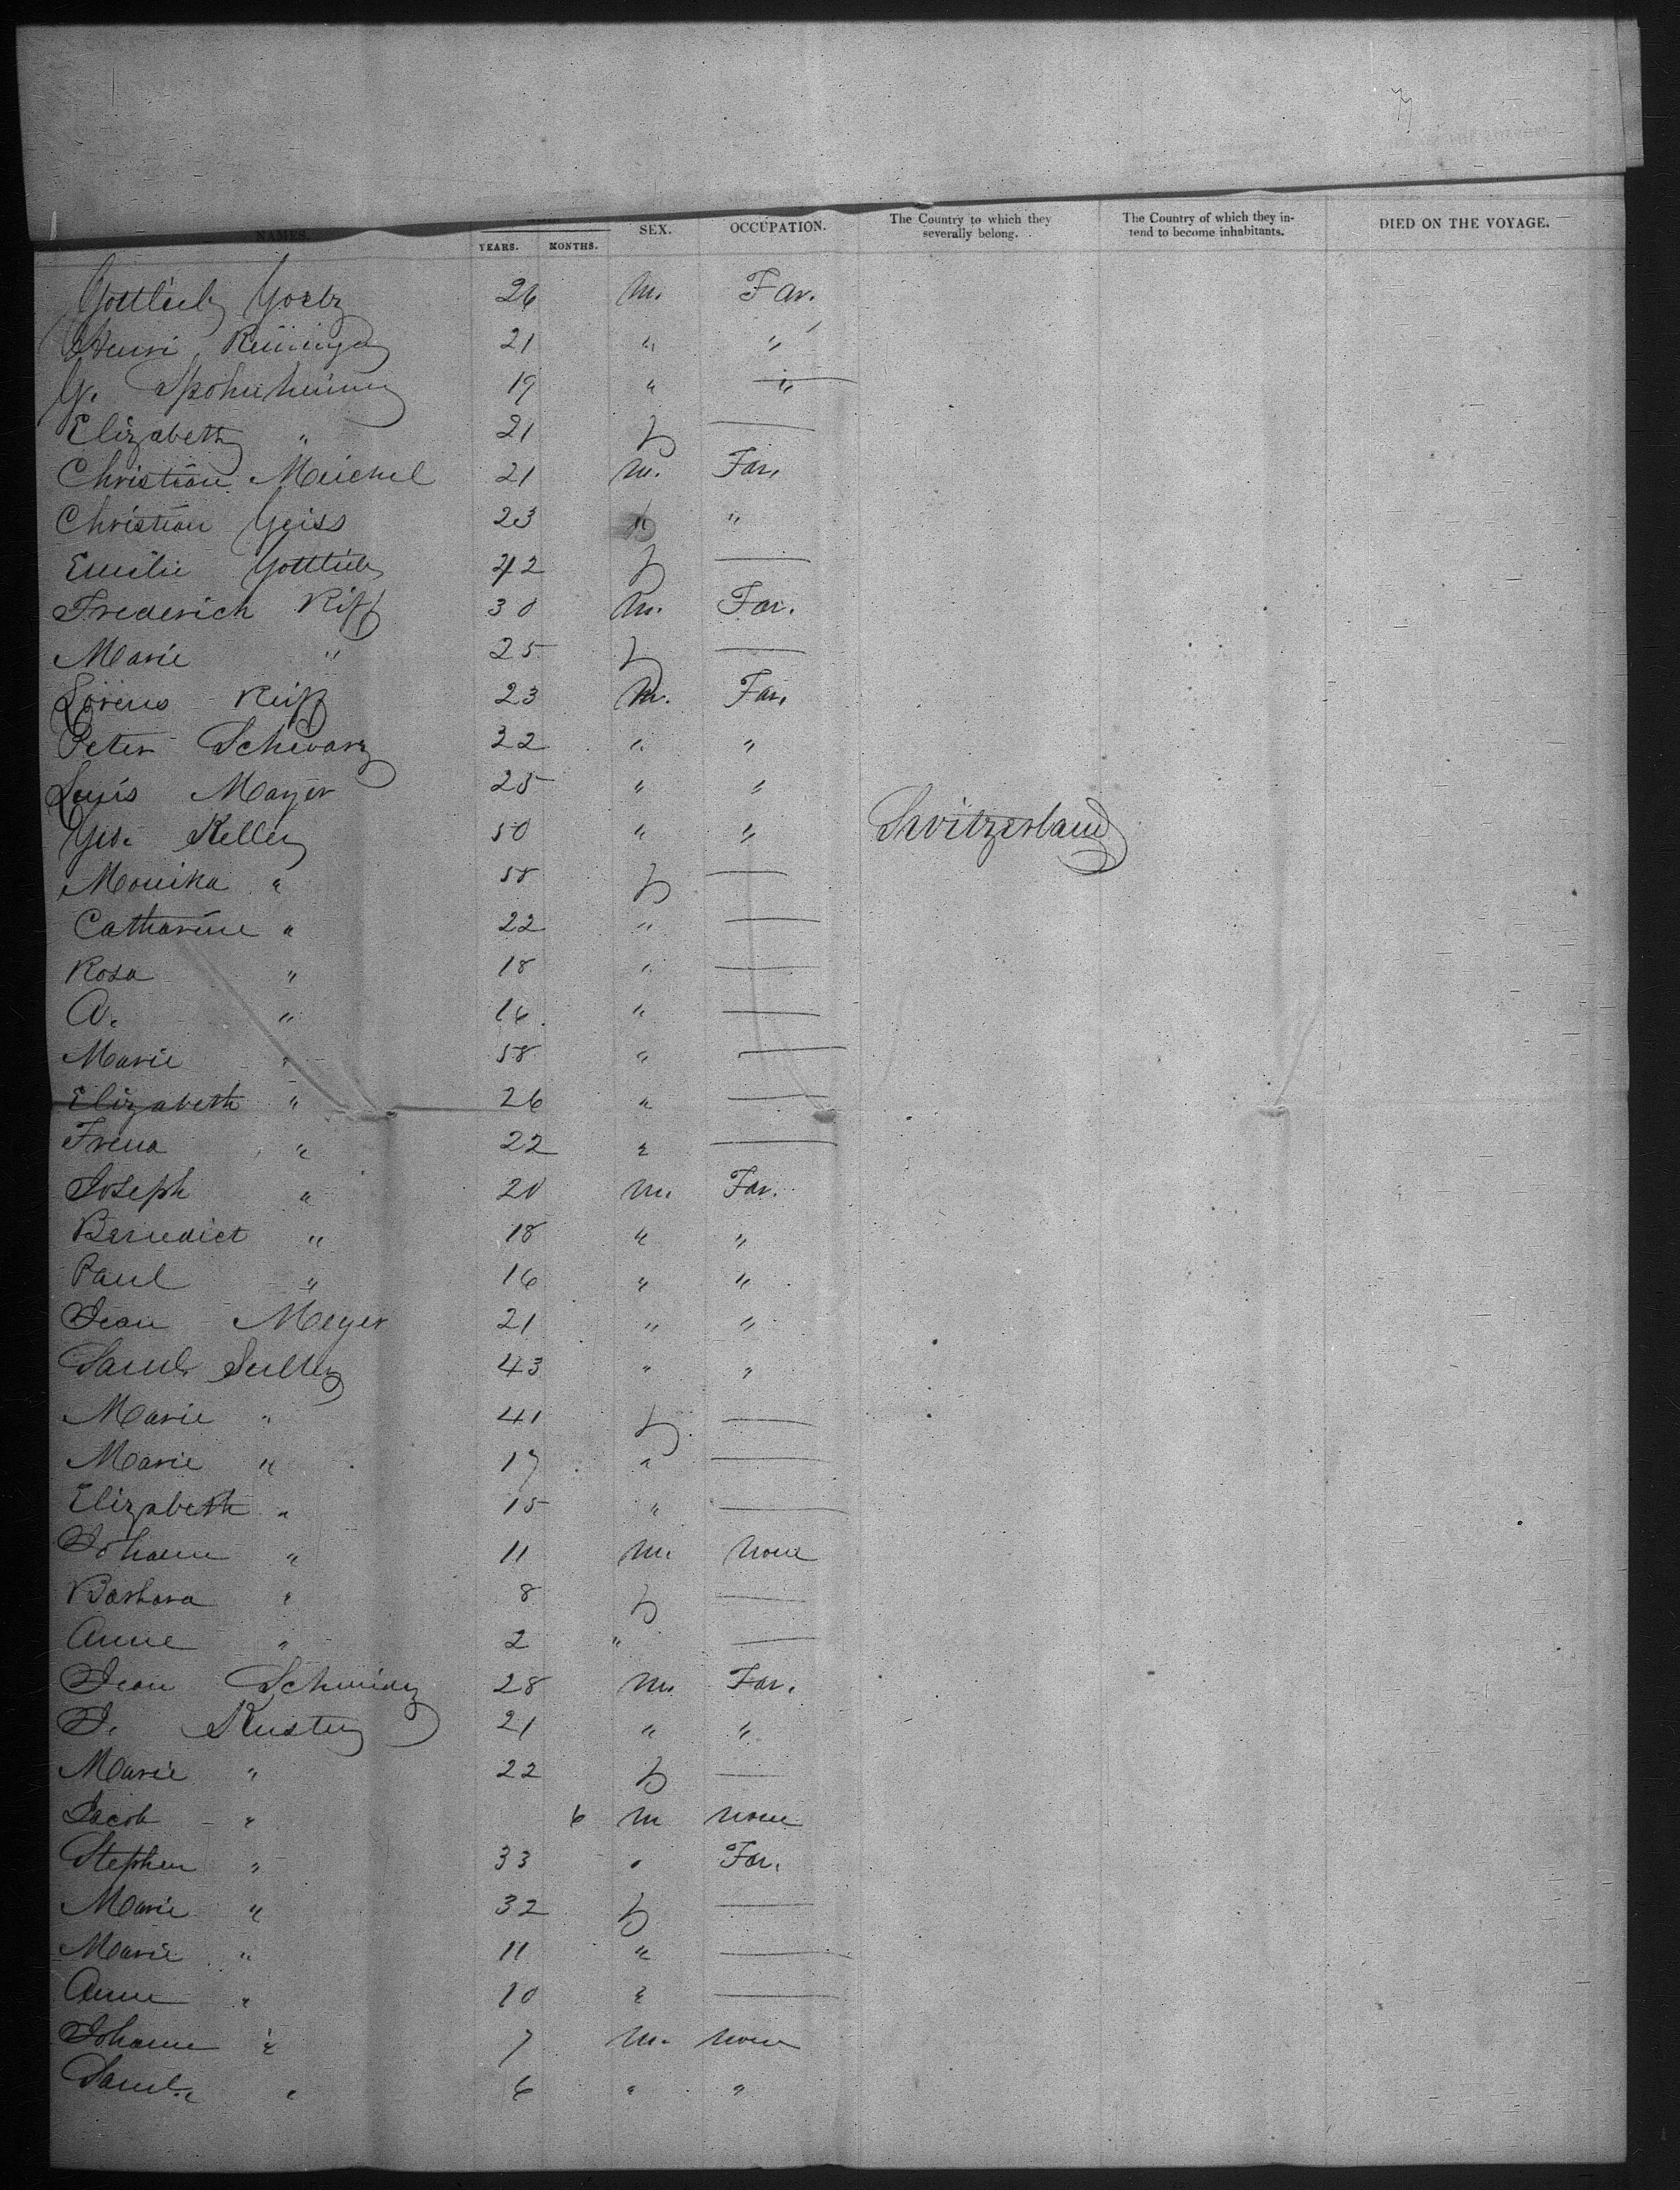 NAMES. YEARS. MONTHS. SEX. OCCUPATION. The Country to which they severally belong. The Country of which they intend to become inhabitants. DIED ON THE VOYAGE.
Gottlieb 26 m. Far.
Henri 21 " "
G. 19 " "
Elizabeth " 21 f —
Christian Meichel 21 m. Far.
Christian Geiss 23 " "
Emilie Gottlieb 42 f —
Frederich Riff 30 m. Far.
Marie " 25 f —
Lorens Reiff 23 m. Far.
Peter Schwarz 32 " "
Louis Mayer 25 " "
Geo. Keller 50 " " Switzerland
Monika " 58 f —
Catharine " 22 " —
Rosa " 18 " —
A. " 16 " —
Marie " 58 " —
Elizabeth " 26 " —
Frena " 22 " —
Joseph " 20 m. Far.
Benedict " 18 " "
Paul " 16 " "
Jean Meyer 21 " "
Saml. 43 " "
Marie " 41 f —
Marie " 17 " —
Elizabeth " 15 " —
Johann " 11 m. none
Barbara " 8 f —
Anne " 2 " —
Jean 28 m. Far.
J. Kuster 21 " "
Marie " 22 f —
Jacob " 6 m none
Stephen " 33 " Far.
Marie " 32 f —
Marie " 11 " —
Anne " 10 " —
Johann " 7 m. none
Saml. " 6 " "